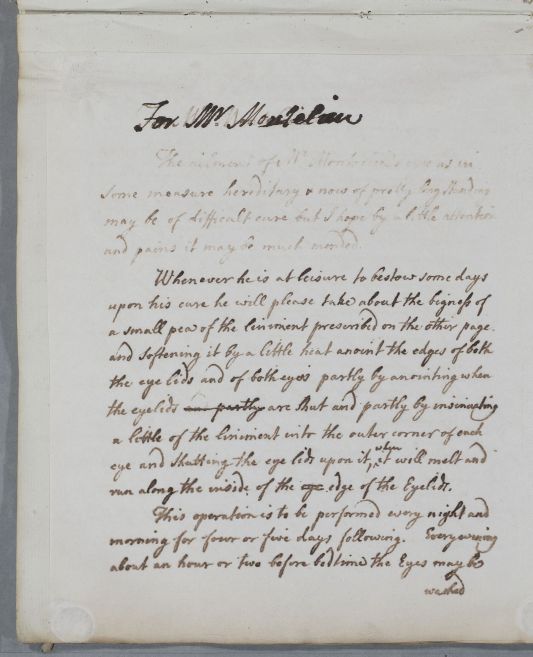 For Mr. Montelieu
The ailment of Mr. Montelieu's eyes as in
some measure hereditary & now of pretty long standing
may be of difficult cure but I hope by a little attention
and pains it may be much mended.
Whenever he is at leisure to bestow some days
upon his cure he will please take about the bigness of
a small pea of the liniment prescribed on the other page.
and softening it by a little heat anoint the edges of both
the eye lids and of both eyes partly by anointing when
the eyelids and partly are shut and partly by insinuating
a little of the liniment into the outer corner of each
eye and shutting the eye lids upon it, when it will melt and
run along the inside of the eye edge of the Eyelids.
This operation is to be performed every night and
morning for four or five days following. Every evening
about an hour or two before bedtime the Eyes may be
washed